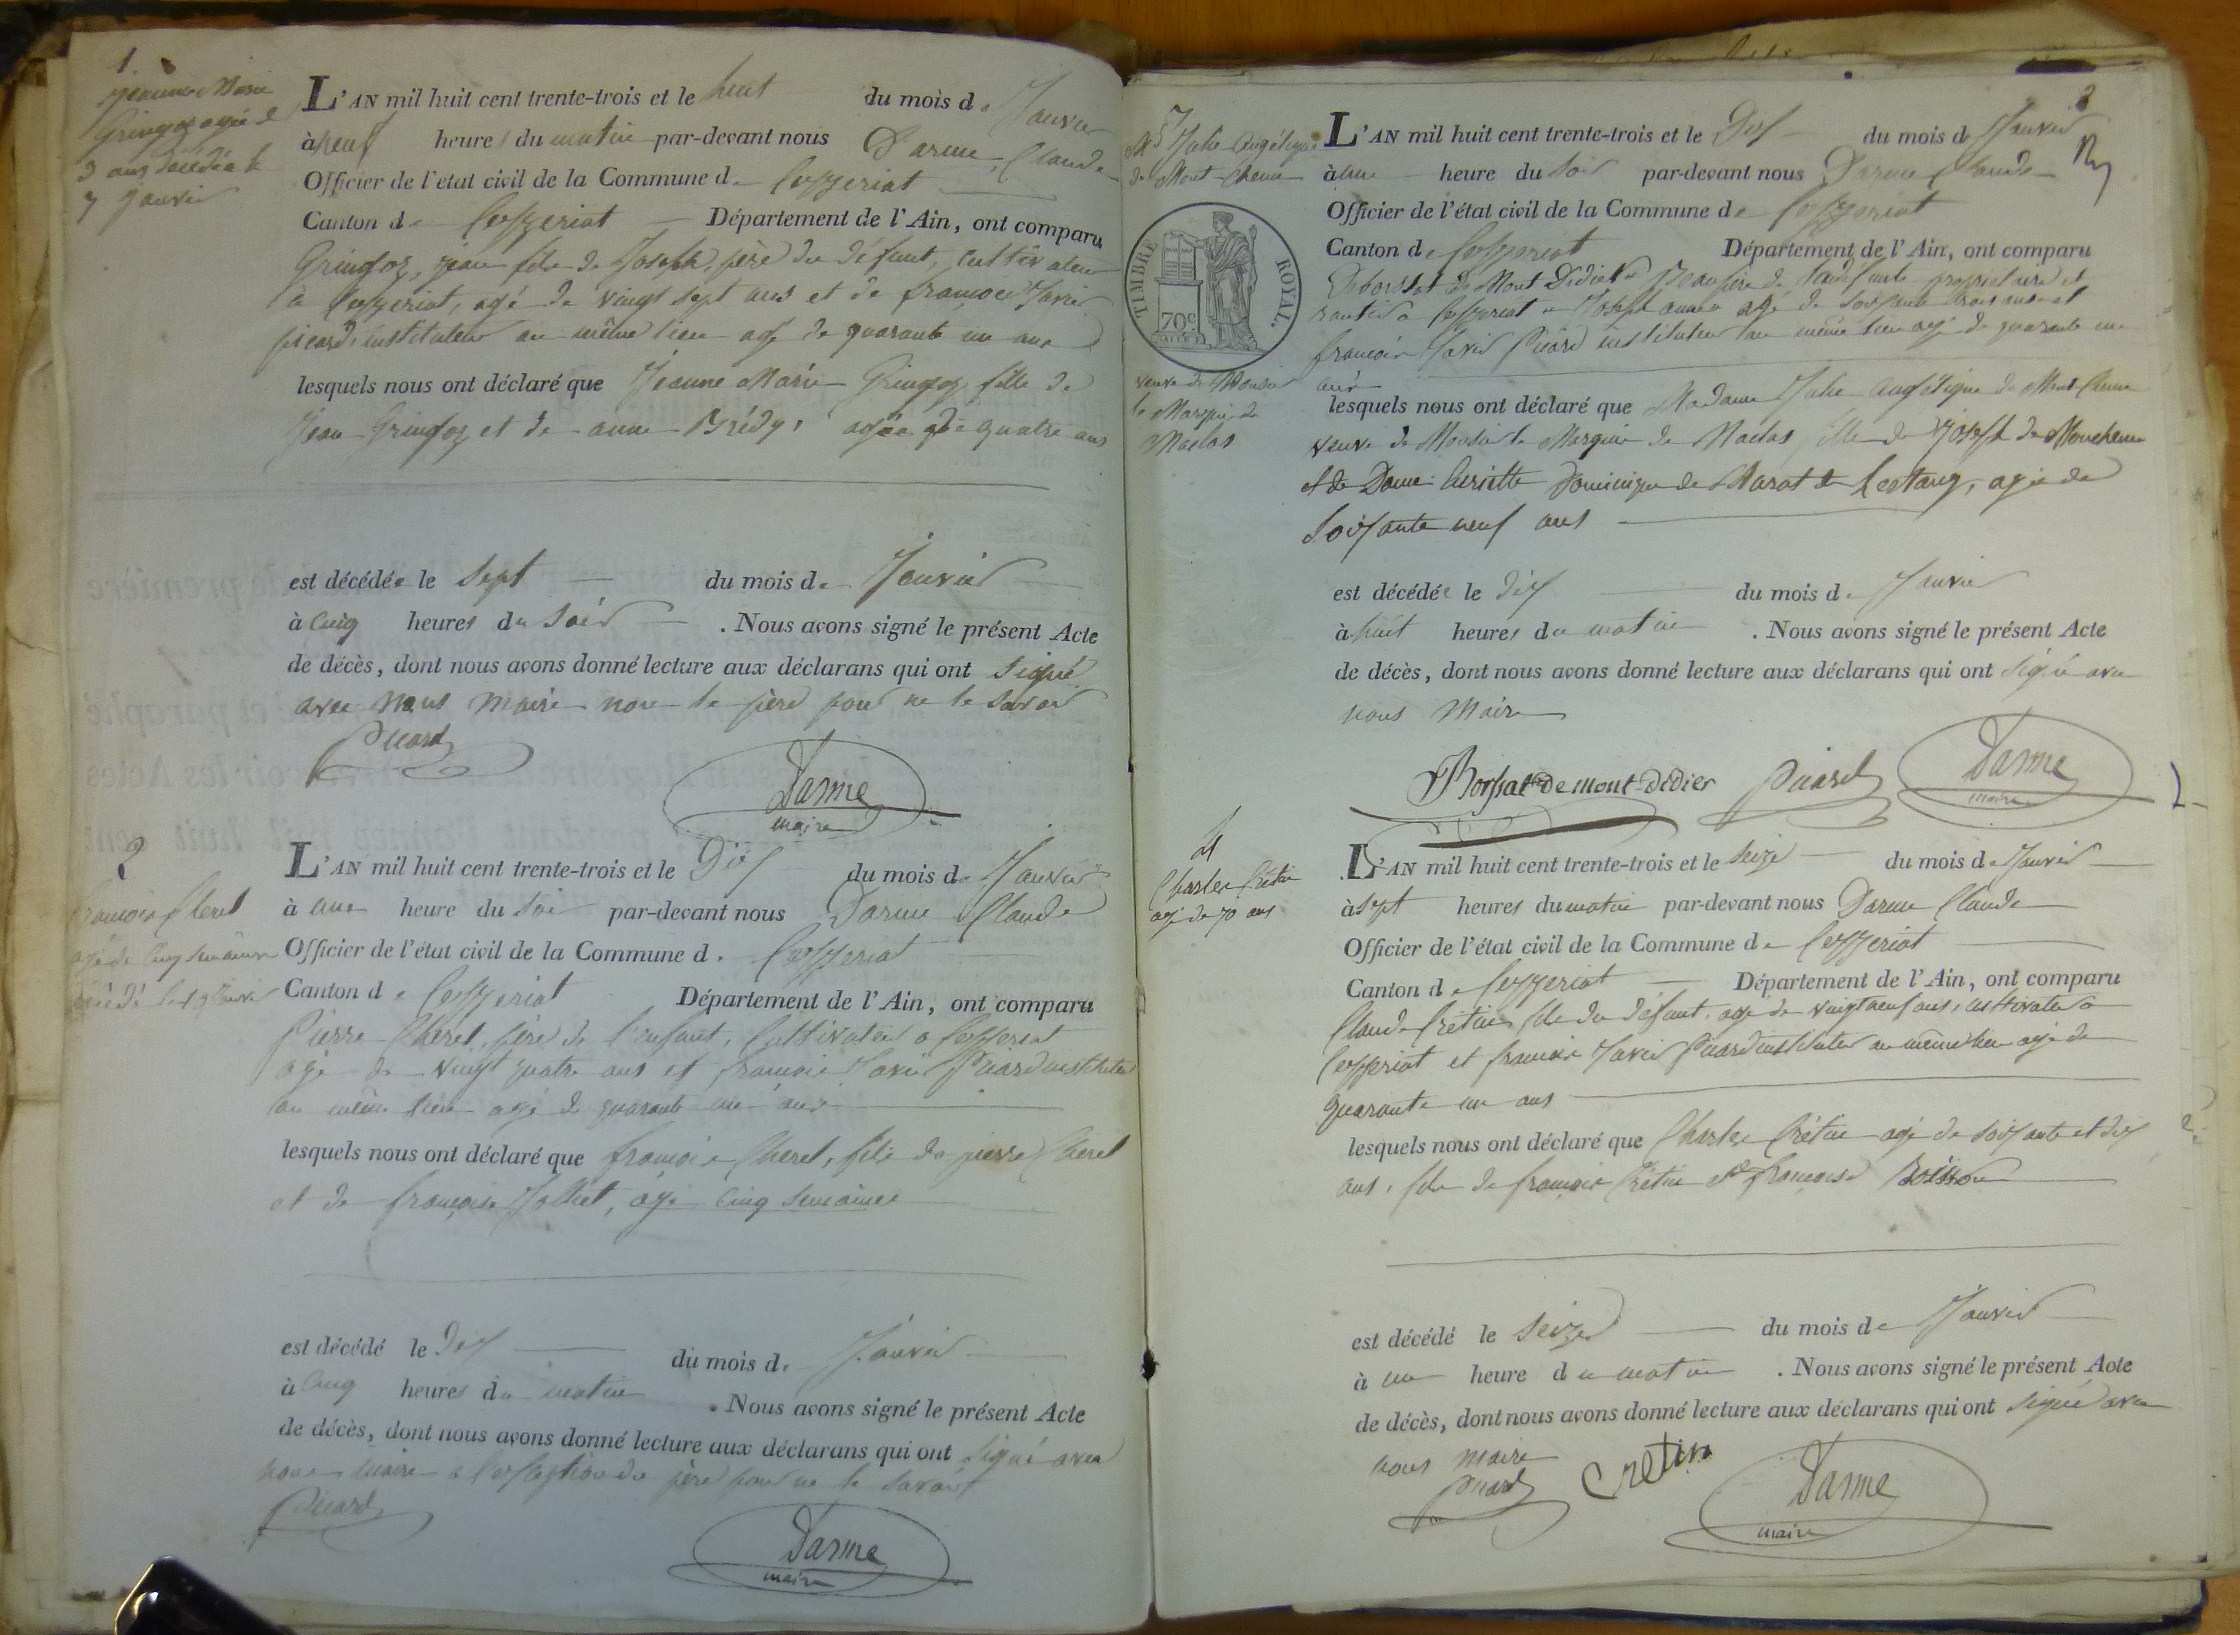 1.
Jeanne Marie
Gringoz agée de
3 ans décédée le
7 Janvier
L'AN mil huit cent trente-trois et le huit du mois de Janvier
à neuf heures du matin par-devant nous Darme Claude
Officier de l'etat civil de la Commune de Ceyzeriat
Canton de Ceyzeriat Département de l'Ain, ont comparu
Gringoz, jean fils de Joseph, père du défunt, cultivateur
à Ceyzeriat, agé de vingt sept ans et de françois Xavier
picard instituteur au même lieu agé de quarante un ans
lesquels nous ont déclaré que Jeanne Marie Gringoz fille de
Jean Gringoz et de anne Brédy, agée de quatre ans
est décédée le sept du mois de Janvier
à Cinq heures du Soir . Nous avons signé le présent Acte
de décès, dont nous avons donné lecture aux déclarans qui ont signé
avec nous maire non le père pour ne le savoir
Picard
Darme
maire
2
françois Cheret
agé de Cinq semaines
décédé le Janvier
L'AN mil huit cent trente-trois et le Dix du mois de Janvier
à une heure du Soir par-devant nous Darme Claude
Officier de l'état civil de la Commune de Ceyzeriat
Canton de Ceyzeriat Département de l'Ain, ont comparu
Pierre Cheret, père de l'enfant, Cultivateur à Ceyzeriat
agé de vingt quatre ans et françois Xavier Picard instituteur
au même lieu agé de quarante un ans
lesquels nous ont déclaré que françois Cheret, fils de pierre Cheret
et de françoise Jolliet, agé cinq semaines
est décédé le Dix du mois de Janvier
à Cinq heures du matin . Nous avons signé le présent Acte
de décès, dont nous avons donné lecture aux déclarans qui ont signé avec
nous maire à l'exception du père pour ne le savoir
Picard
Darme
maire
3
3
Julie Angélique
de Mont Chenu
TIMBRE ROYAL.
70c
veuve de Monsieur
le Marquis de
Maclas
L'AN mil huit cent trente-trois et le Dix du mois de Janvier
à une heure du Soir par-devant nous Darme Claude
Officier de l'état civil de la Commune de Ceyzeriat
Canton de Ceyzeriat Département de l'Ain, ont comparu
de Mont Didier Beaufrère de la défunte propriétaire et
rentier à Ceyzeriat Joseph agé de soixante trois ans et
françois Xavier Picard instituteur au même lieu agé de quarante un
ans
lesquels nous ont déclaré que Madame Julie angélique de Mont Chenu
veuve de Monsieur le Marquis de Maclas fille de Joseph de Monchenu
et de Dame henriette Dominique de Marat de Lestang, agée de
Soixante neuf ans
est décédée le Dix du mois de Janvier
à huit heures du matin . Nous avons signé le présent Acte
de décès, dont nous avons donné lecture aux déclarans qui ont signé avec
nous Maire
Borsat de mont-didier Picard Darme
maire
4
Charles Crétin
agé de 70 ans
L'AN mil huit cent trente-trois et le Seize du mois de Janvier
à sept heures du matin par-devant nous Darme Claude
Officier de l'état civil de la Commune de Ceyzeriat
Canton de Ceyzeriat Département de l'Ain, ont comparu
Claude Crétin fils du défunt, agé de vingt neuf ans, cultivateur à
Ceyzeriat et françois Xavier Picard instituteur au même lieu agé de
quarante un ans
lesquels nous ont déclaré que Charles Crétin agé de soixante et dix
ans, fils de françois Crétin et de françoise Boisson
est décédé le Seize du mois de Janvier
à une heure du matin . Nous avons signé le présent Acte
de décès, dont nous avons donné lecture aux déclarans qui ont signé avec
nous maire
Picard Cretin Darme
maire